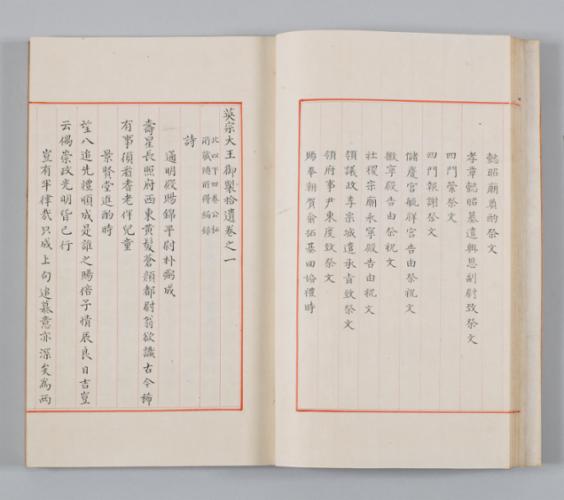 懿昭廟奠酌祭文
孝章懿昭墓遣輿恩副尉致祭文
四門禜祭文
四門報謝祭文
儲慶宮毓祥宮告由祭祝文
徽寧殿告由祭祝文
社稷宗廟永寧殿告由祝文
領議政李宗城遣承旨致祭文
領府事尹東度致祭文
賜奉朝賀俞拓基回婚禮時
英宗大王御製拾遺卷之一
此以下四卷公私
所藏隨所得編錄
詩
通明殿賜錦平尉朴弼成
壽星長照府西東黃髮蒼顏都尉翁欲識古今稀
有事須看耆老伴兒童
景賢堂進酌時
望八進先禮順成是誰之賜倍予情辰良日吉豈
云偶崇政光明皆已行
豈有半律哉只成上句追慕意亦深矣為兩